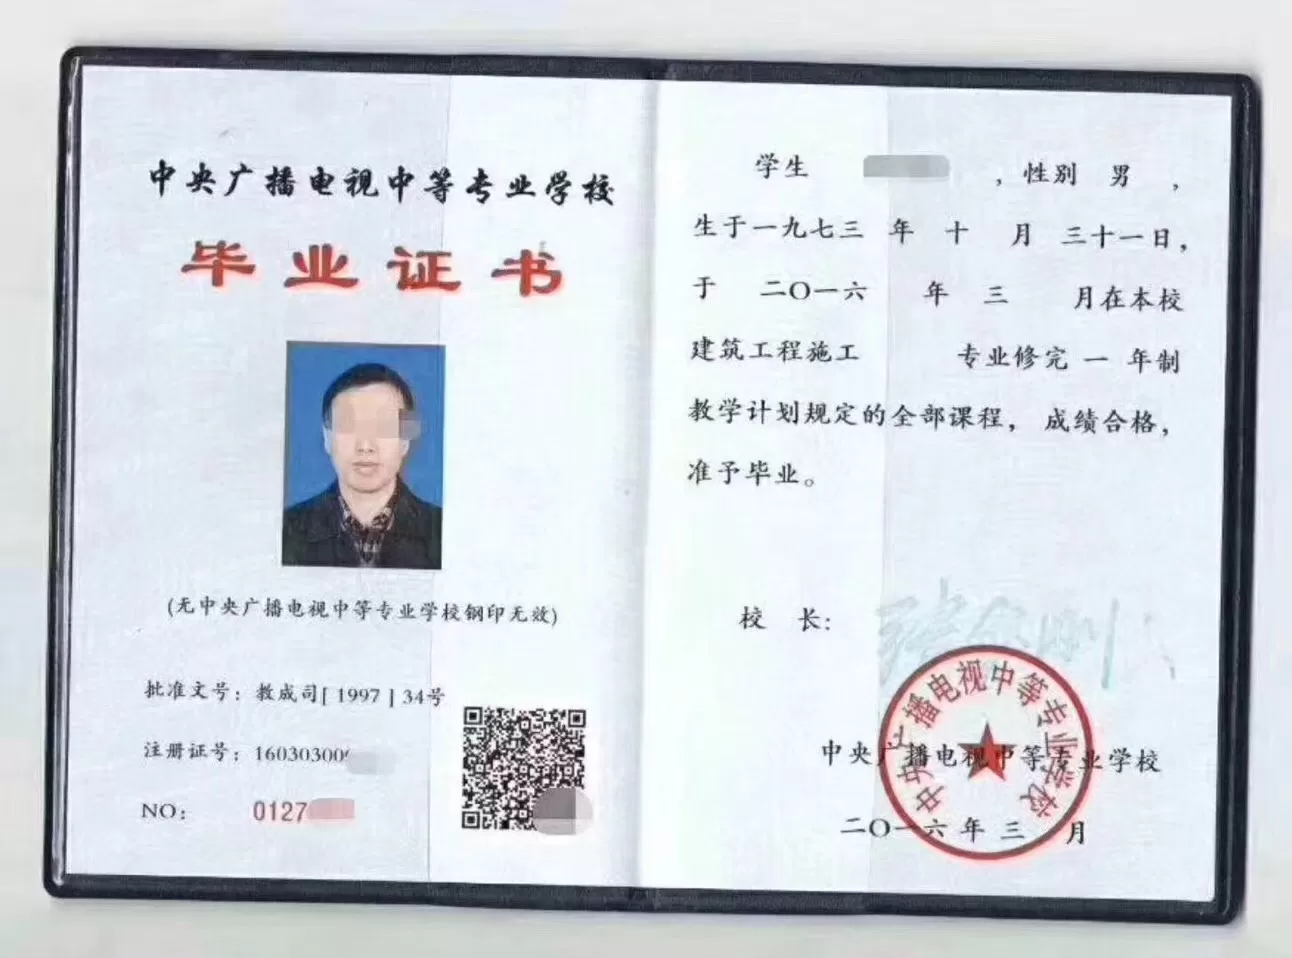 中央广播电视中等专业学校
毕业证书
(无中央广播电视中等专业学校钢印无效)
批准文号：教成司[ 1997 ] 34号
注册证号：16030300
NO： 0127
学生 ，性别 男 ，
生于一九七三 年 十 月 三十一日，
于 二〇一六 年 三 月在本校
建筑工程施工 专业修完 一 年制
教学计划规定的全部课程， 成绩合格，
准予毕业。
校 长：
中央广播电视中等专业学校
中央广播电视中等专业学校
二〇一六 年 三 月